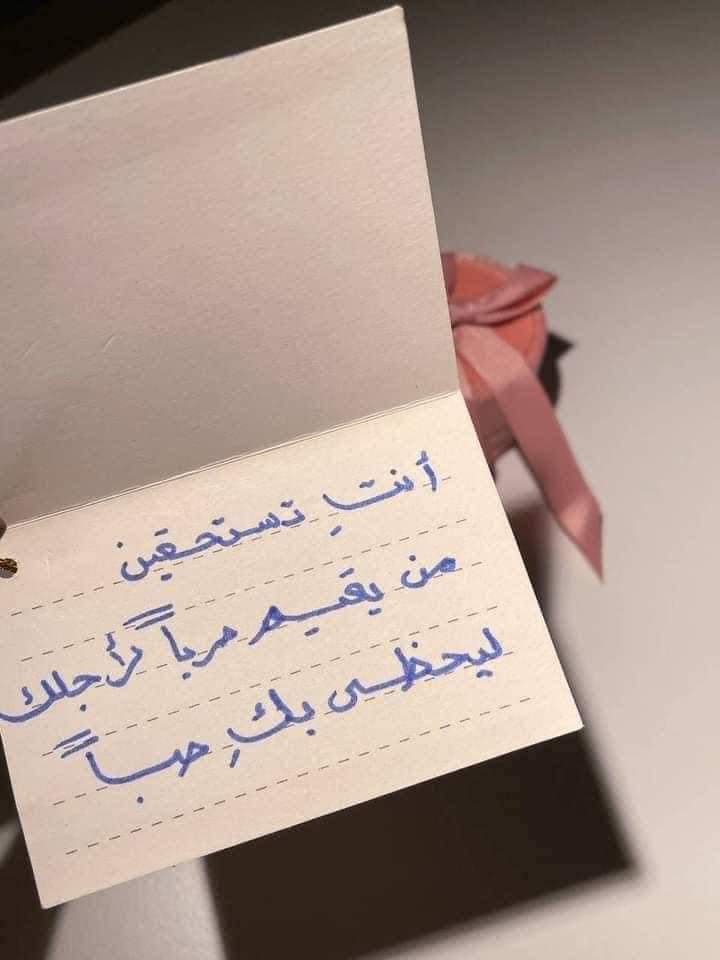 أنتِ تستحقين
من يقيم حرباً لأجلك
ليحظى بكِ حباً